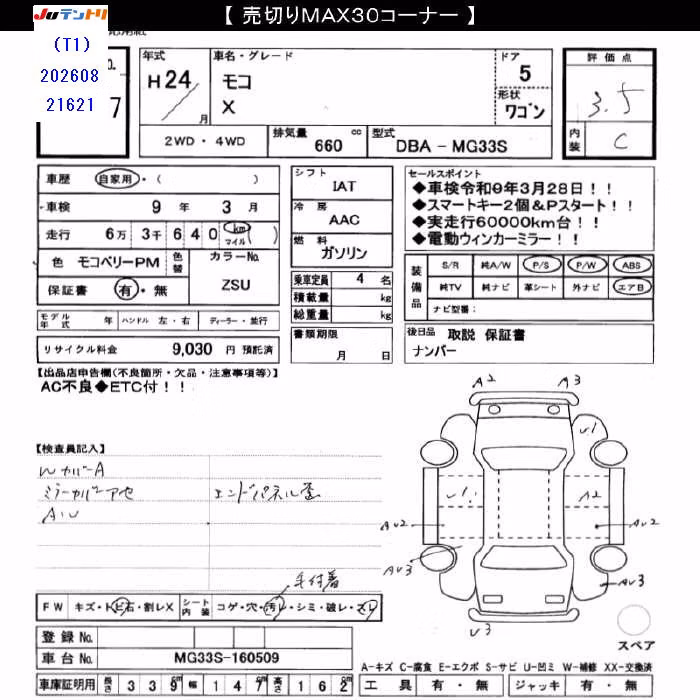 【 売切りMAX30コーナー 】
JUテントリ
(T1)
202608
21621
7
年式
H24
年
月
車名・グレード
モコ
X
ドア
5
形状
ワゴン
評価点
3.5
内装
C
2WD・4WD
排気量
660
cc
型式
DBA - MG33S
車歴
自家用・( )
車検
9 年 3 月
走行
6万 3千 6 4 0 km
マイル
色
モコベリーPM
色替
カラーNo.
ZSU
保証書
有・無
モデル年式
年
ハンドル
左・右
ディーラー・並行
リサイクル料金
9,030 円 預託済
シフト
IAT
冷房
AAC
燃料
ガソリン
乗車定員
4 名
積載量
kg
総重量
kg
書類期限
月 日
セールスポイント
◆車検令和9年3月28日！！
◆スマートキー2個＆Pスタート！！
◆実走行60000km台！！
◆電動ウィンカーミラー！！
装備品
S/R 純A/W P/S P/W ABS
純TV 純ナビ 革シート 外ナビ エアB
ナビ型番:
後日品
取説 保証書
ナンバー
【出品店申告欄(不良箇所・欠品・注意事項等)】
AC不良◆ETC付！！
【検査員記入】
WカバーA
ミラーカバーアセ
AU
エンドパネル歪
毛付着
FW
キズ・トビ石・割レX
シート内装
コゲ・穴・汚レ・シミ・破レ・スレ
登録No.
車台No.
MG33S-160509
車庫証明用
長さ
339
幅
147
高さ
162
cm
A2
A3
U1
U1
A2
AU2
AU2
AU3
AU3
U3
スペア
A-キズ C-腐食 E-エクボ S-サビ U-凹ミ W-補修 XX-交換済
工具
有・無
ジャッキ
有・無